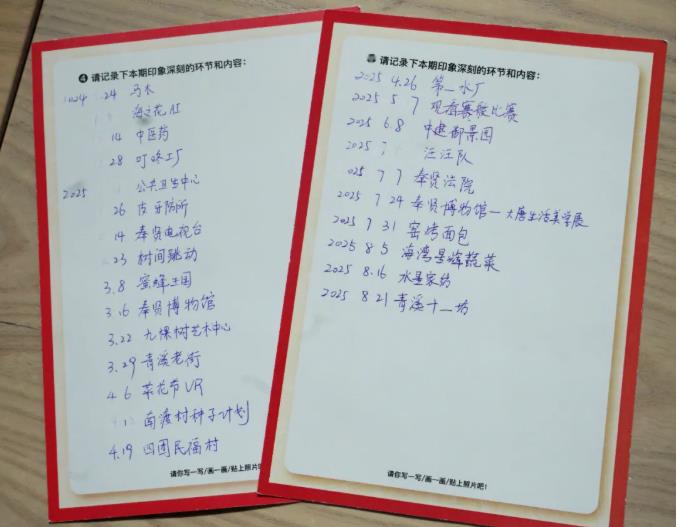 4 请记录下本期印象深刻的环节和内容：
24 马术
海之花AI
14 中医药
28 叮咚工厂
2025 公共卫生中心
26 皮牙防所
14 奉贤电视台
23 树间跳动
3.8 蜜蜂王国
3.16 奉贤博物馆
3.22 九棵树艺术中心
3.29 青溪老街
4.6 菜花节VR
南渡村种子计划
4.19 四团民福村
请你写一写/画一画/贴上照片吧
请记录下本期印象深刻的环节和内容：
2025 4.26 第一水厂
2025 5 7 观看赛艇比赛
2025 6.8 中建御景园
2025 汪汪队
7 7 奉贤法院
2025 7 24 奉贤博物馆一大唐生活美学展
2025 7 31 窑烤面包
2025 8.5 海湾星辉蔬菜
2025 8.16 水星家纺
2025 8 21 青溪十一坊
请你写一写/画一画/贴上照片吧！